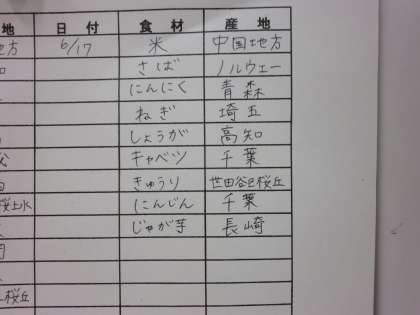 地 日付 食材 産地
地方 6/17 米 中国地方
さば ノルウェー
にんにく 青森
ねぎ 埼玉
しょうが 高知
キャベツ 千葉
きゅうり 世田谷区桜丘
桜上水 にんじん 千葉
じゃが芋 長崎
桜丘